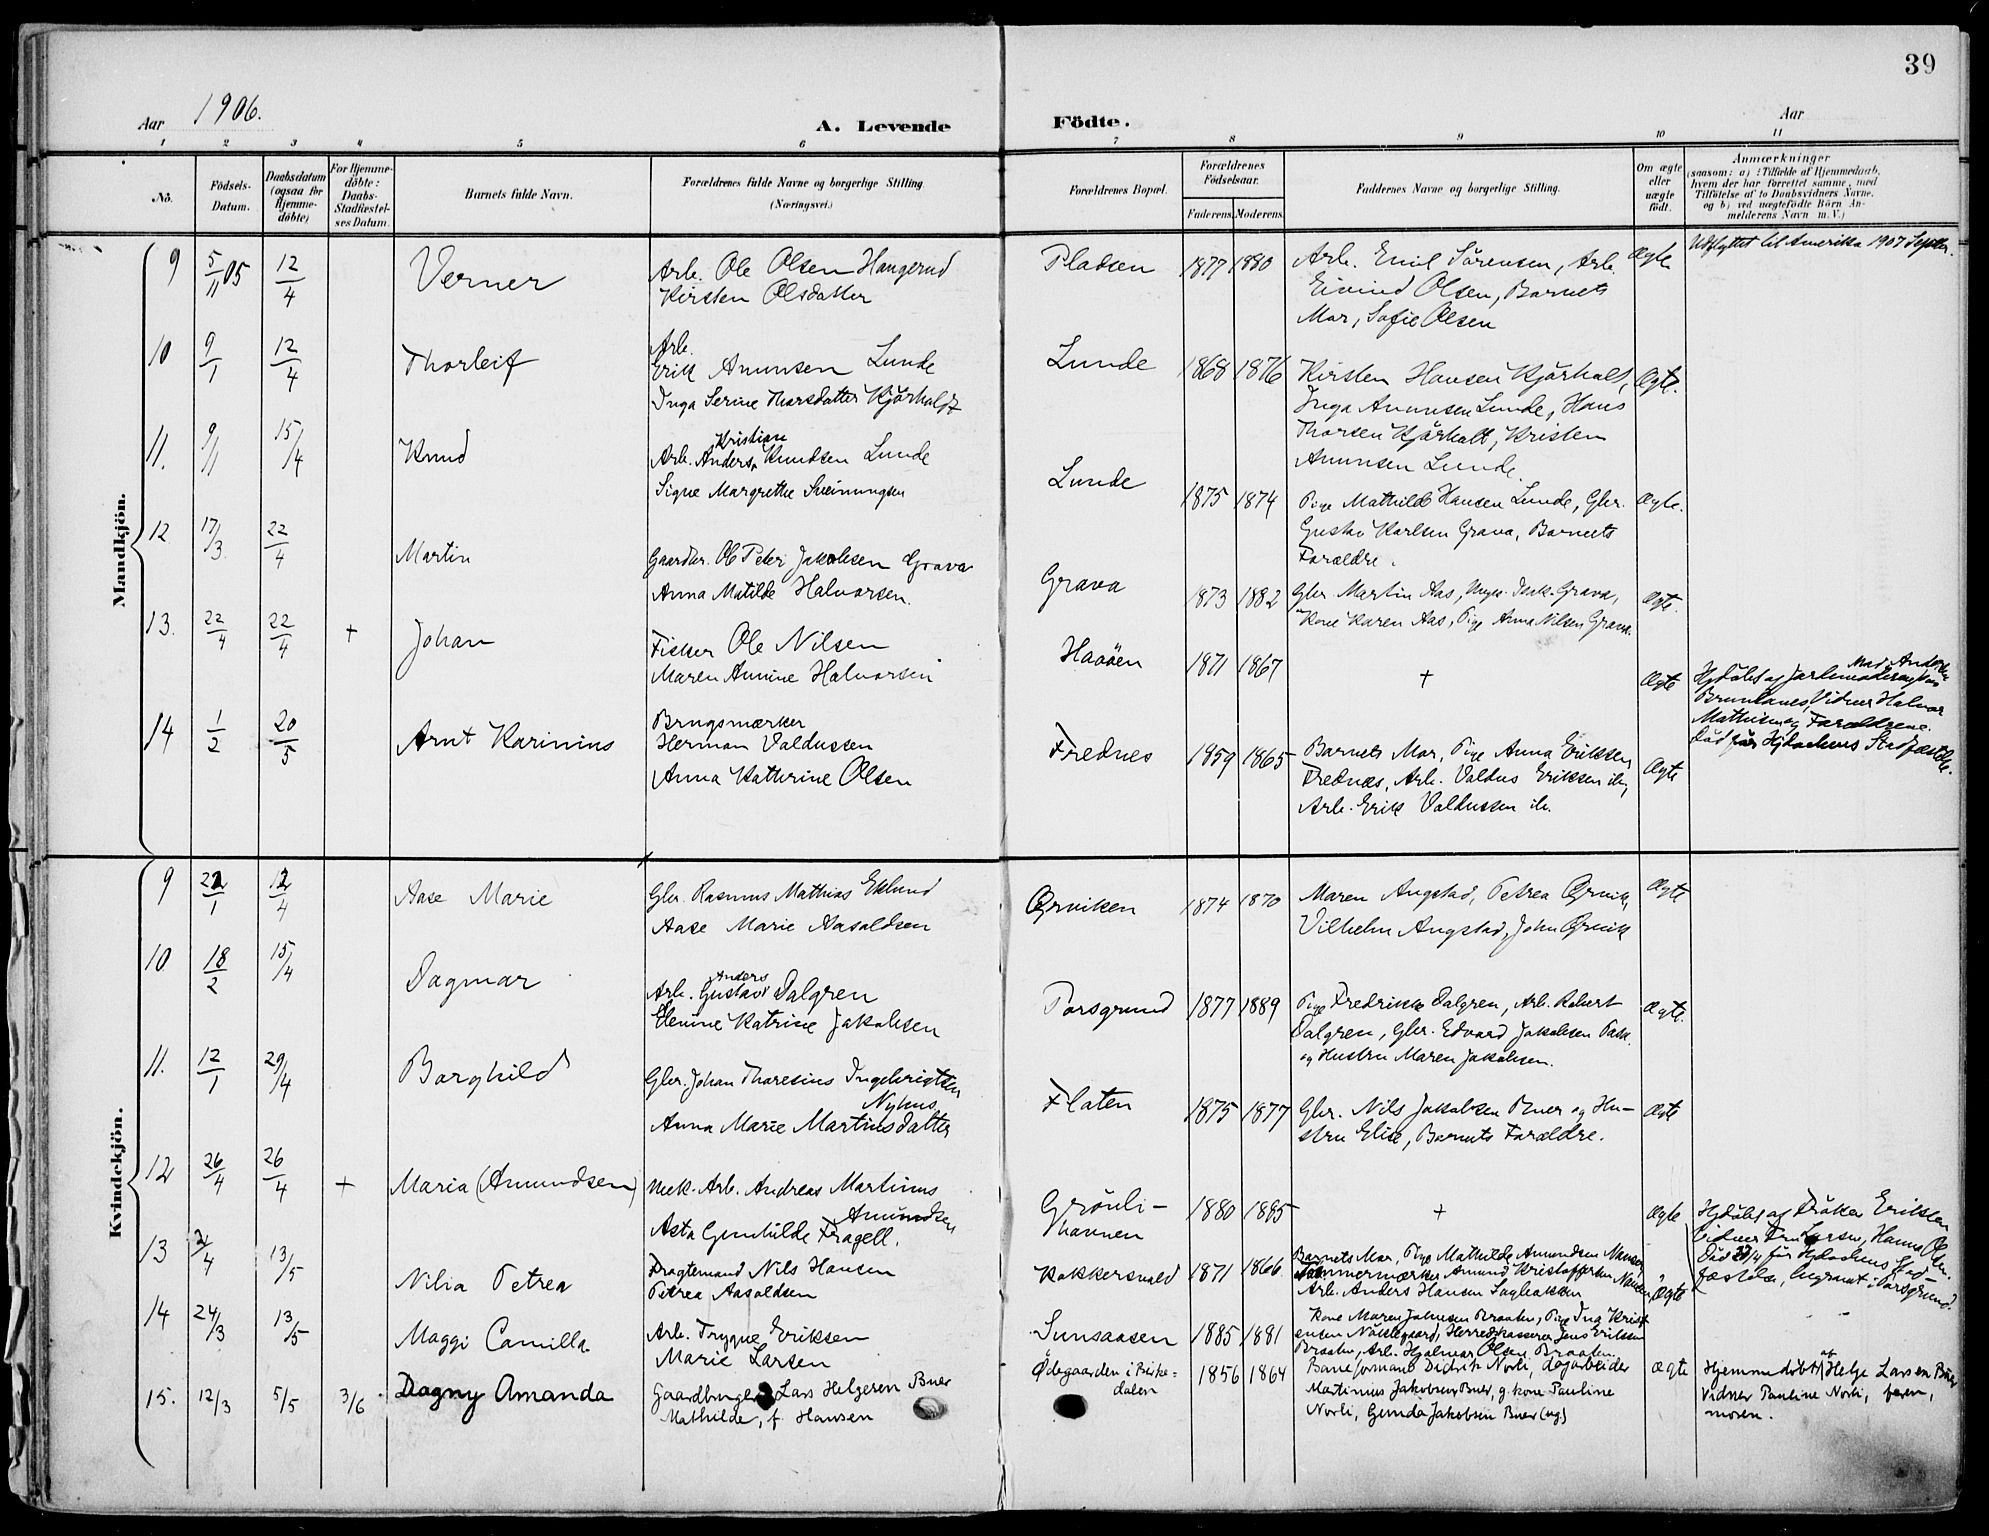 39
Aar 1906.
A. Levende Födte.
Aar
1 2 3 4 5 6 7 8 9 10 11
No.
Födsels-Datum.
Daabsdatum (ogsaa for Hjemme-döbte)
For Hjemme-döbte: Daabs-Stadfæstel-ses Datum.
Barnets fulde Navn.
Forældrenes fulde Navne og borgerlige Stilling.
(Næringsvei.)
Forældrenes Bopæl.
Forældrenes Födselsaar.
Faderens. Moderens.
Faddernes Navne og borgerlige Stilling.
Om ægte eller uægte födt.
Anmærkninger
(saasom: a) i Tilfælde af Hjemmedaab,
hvem der har forrettet samme, med
Tilföielse af to Daabsvidners Navne,
og b) ved uægtefödte Börn An-
melderens Navn m. V.)
Mandkjön.
9 5/11 05 12/4 Verner
Arb. Ole Olsen Haugerud
Kirsten Olsdatter
Pladsen 1877 1880
Arb. Emil Sörensen, Arb.
Eivind Olsen, Barnets
Mor, Sofie Olsen
Ægte
Udflyttet til Amerika 1907 Septbr.
10 9/1 12/4 Thorleif
Arb.
Erik Amunsen Lunde
Inga Serine Thorsdatter Kjörholdt
Lunde 1868 1876
Kirsten Hansen Kjörholt,
Inga Amunsen Lunde, Hans
Thorsen Kjörholt, Kristen
Amunsen Lunde.
Ægte.
11. 9/11 15/4 Knud
Kristian
Arb. Anders Knudsen Lunde
Signe Margrethe Sveinungsen
Lunde 1875 1874
Pige Mathilde Hansen Lunde, Gbr.
Gustav Karlsen Grava, Barnets
Forældre.
Ægte.
12. 17/3 22/4 Martin
Gaardbr. Ole Peter Jakobsen Grava
Anna Matilde Halvorsen.
Grava 1873 1882
Gbr. Martin Aas, Grava,
Kone Karen Aas, Pige Anna Nilsen Grava.
Ægte.
13. 22/4 22/4 + Johan
Fisker Ole Nilsen
Maren Annine Halvorsen
Haaöen 1871 1867
+
Ægte
Hjdöbt af Jordemoder
Vidner Halvor
Mathisen og Forældrene.
Död för Hjdaabens Stadfæstelse.
14 1/2 20/5 Arnt Karinius
Brugsmærker
Herman Valdussen
Anna Kathrine Olsen
Frednes 1859 1865
Barnets Mor, Pige Anna Eriksen
Frednes, Arb. Valdus Eriksen ib,
Arb. Erik Valdussen ib.
Ægte
Kvindekjön.
9 22/1 12/4 Aase Marie
Gbr. Rasmus Mathias Eklund
Aase Marie Aasoldsen
Ørviken 1874 1870
Maren Augstad, Petrea Ørvik,
Vilhelm Augstad, John Ørvik
Ægte
10 18/2 15/4 Dagmar
Anders
Arb. Gustav Dalgren
Elenine Katrine Jakobsen
Porsgrund 1877 1889
Pige Fredrikke Dalgren, Arb. Robert
Dalgren, Gbr. Edvard Jakobsen
og Hustru Maren Jakobsen.
Ægte.
11. 12/1 29/4 Borghild
Gbr. Johan Thoresius Ingebrigtsen
Nyhus
Anna Marie Martinsdatter
Flaten 1875 1877
Gbr. Nils Jakobsen Buer og Hu-
stru Elise, Barnets Forældre.
Ægte
12 26/4 26/4 + Maria (Amundsen)
Mek. Arb. Andreas Martinus
Amundsen
Asta Gunhilde Fragell.
Grönli-
havnen
1880 1885
+
Ægte
Hjdöbt af Dröker Eriksen
Vidner Fru Larsen, Hanna Olsen.
Död för Hjdaabens Stad-
fæstelse, begravet i Porsgrund.
13 2/4 13/5 Nilia Petrea
Dragtemand Nils Hansen
Petrea Aasoldsen
Kokkersvold 1871 1866
Barnets Mor, Pige Mathilde Amundsen
Tömmermærker Amund Kristoffersen
Arb. Anders Hansen Sagbakken
Ægte
14 24/3 13/5 Maggi Camilla
Arb. Trygve Eriksen
Marie Larsen
Sunsaasen 1885 1881
Kone Maren Johnsen Braaten, Pige Ina Krist-
ensen Nöklegaard, Herredskasserer Jens Eriksen
Arb. Hjalmar Olsen Braaten.
15. 12/3 5/5 3/6 Dagny Amanda
Gaardbruger Lars Helgesen Buer
Mathilde, f. Hansen
Ødegaarden i Birke-
dalen
1856 1864
Baneformand Didrik Norli, dagarbeider
Martinius Jakobsen Buer, g. kone Pauline
Norli, Gunda Jakobsen Buer (ug)
Ægte
Hjemmedöbt af Helge Larsen Buer
Vidner Pauline Norli,
moren.